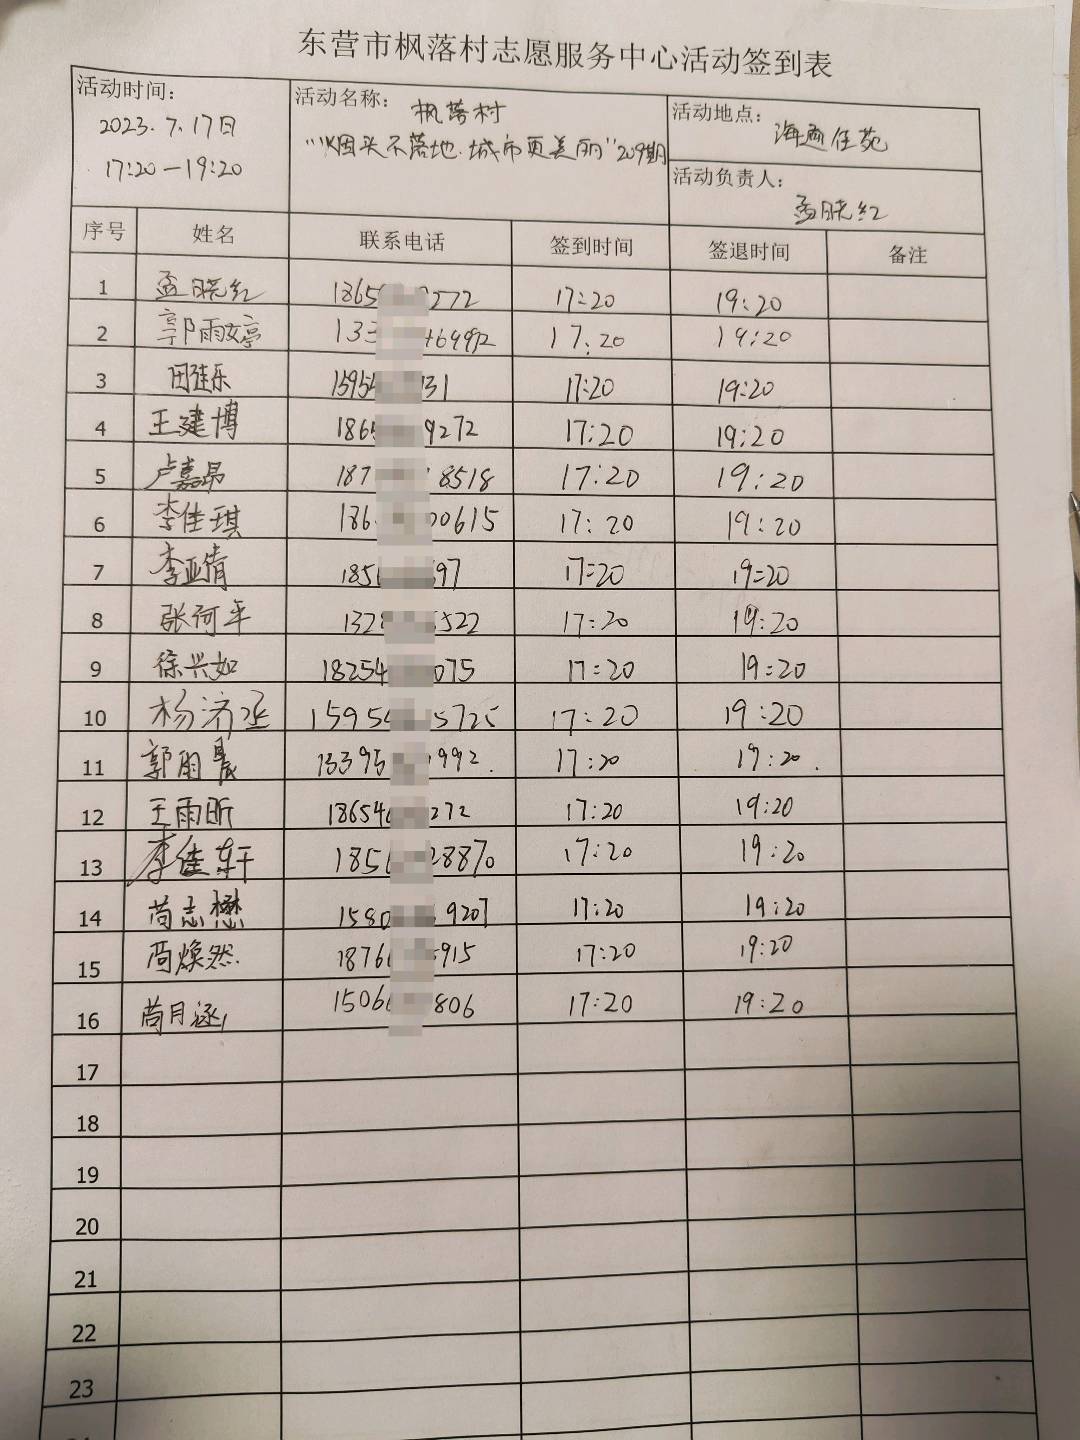 东营市枫落村志愿服务中心活动签到表
活动时间：
2023.7.17日
17:20—19:20
活动名称： 枫落村
"烟头不落地.城市更美丽"209期
活动地点： 海通佳苑
活动负责人：
孟晓红
序号 姓名 联系电话 签到时间 签退时间 备注
1 孟晓红 1865 2572 17:20 19:20
2 郭雨婷 133 464992 17:20 19:20
3 田佳乐 15954 31 17:20 19:20
4 王建博 1865 9272 17:20 19:20
5 卢嘉昂 187 8518 17:20 19:20
6 李佳琪 186 00615 17:20 19:20
7 李亚倩 185 97 17:20 19:20
8 张何平 132 5522 17:20 19:20
9 徐兴如 18254 075 17:20 19:20
10 杨济丞 15954 5725 17:20 19:20
11 郭雨晨 13395 1992. 17:20 19:20.
12 王雨昕 18654 272 17:20 19:20
13 李佳轩 185 28870 17:20 19:20
14 苘志懋 1580 9207 17:20 19:20
15 焕然 1876 5915 17:20 19:20
16 苘月 1506 806 17:20 19:20
17
18
19
20
21
22
23